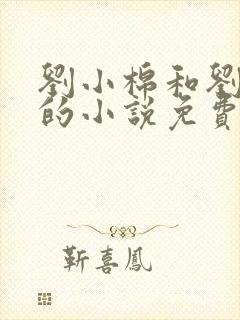 劉小棉和劉
的小說免費
靳喜鳳